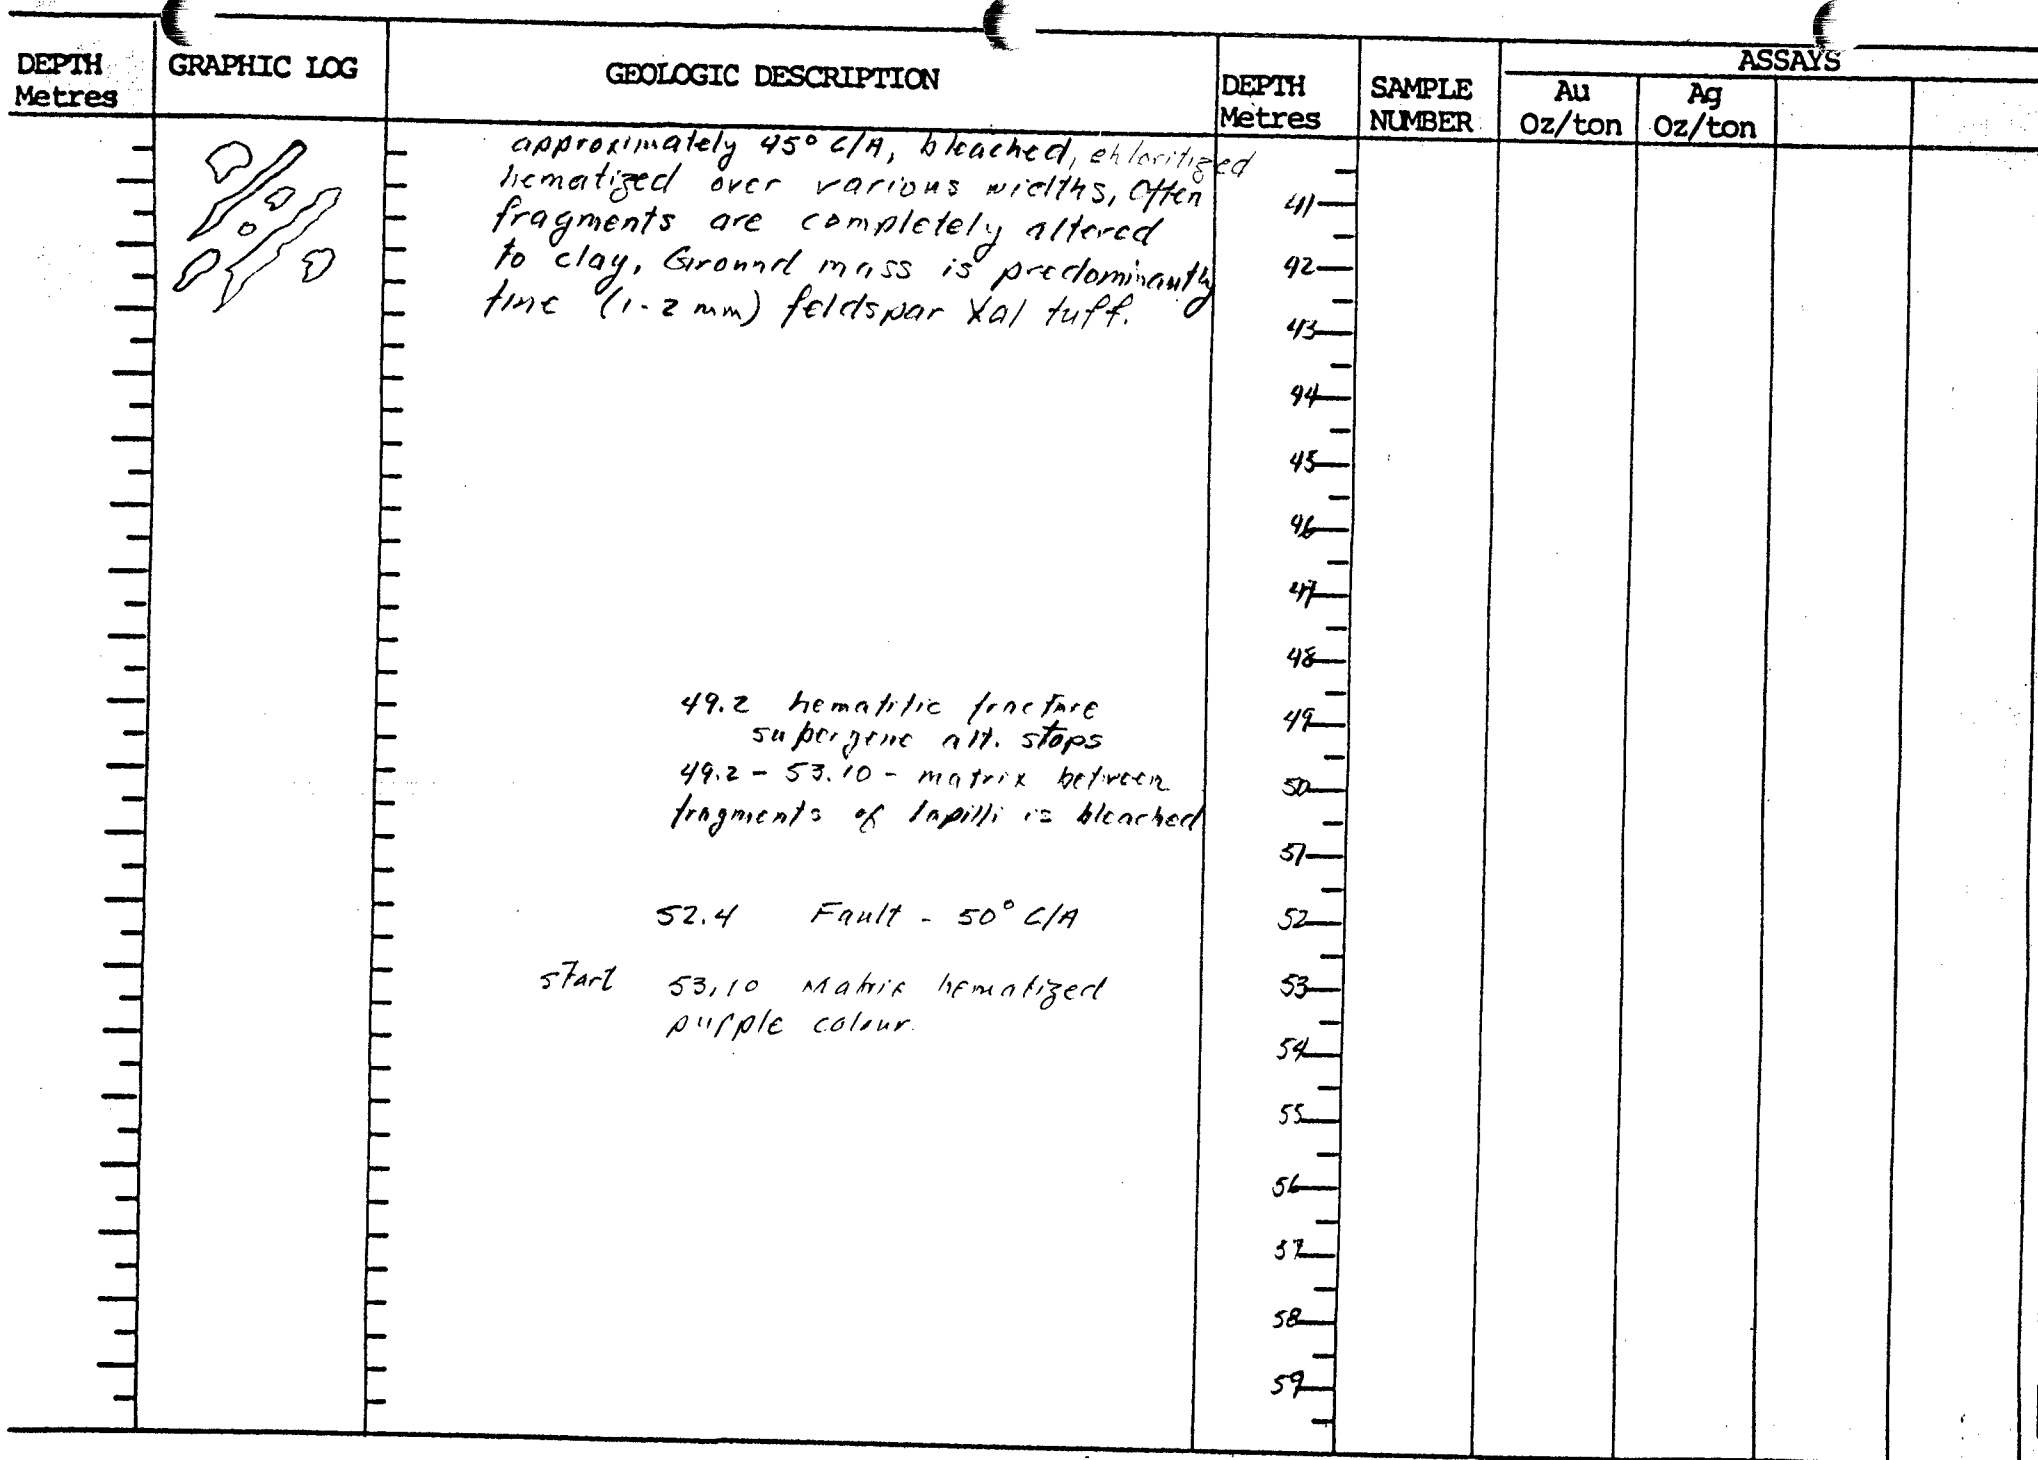 DEPTH Metres
GRAPHIC LOG
GEOLOGIC DESCRIPTION
DEPTH Metres
SAMPLE NUMBER
ASSAYS
Au Oz/ton
Ag Oz/ton
approximately 45° C/A, bleached, chloritized
hematized over various widths, Often
fragments are completely altered
to clay, Ground mass is predominantly
fine (1-2 mm) feldspar Xal tuff.
49.2 hematitic fracture
supergene alt. stops
49.2 - 53.10 - matrix between
fragments of lapilli is bleached
52.4 Fault - 50° C/A
start 53.10 Matrix hematized
purple colour.
41
42
43
44
45
46
47
48
49
50
51
52
53
54
55
56
57
58
59